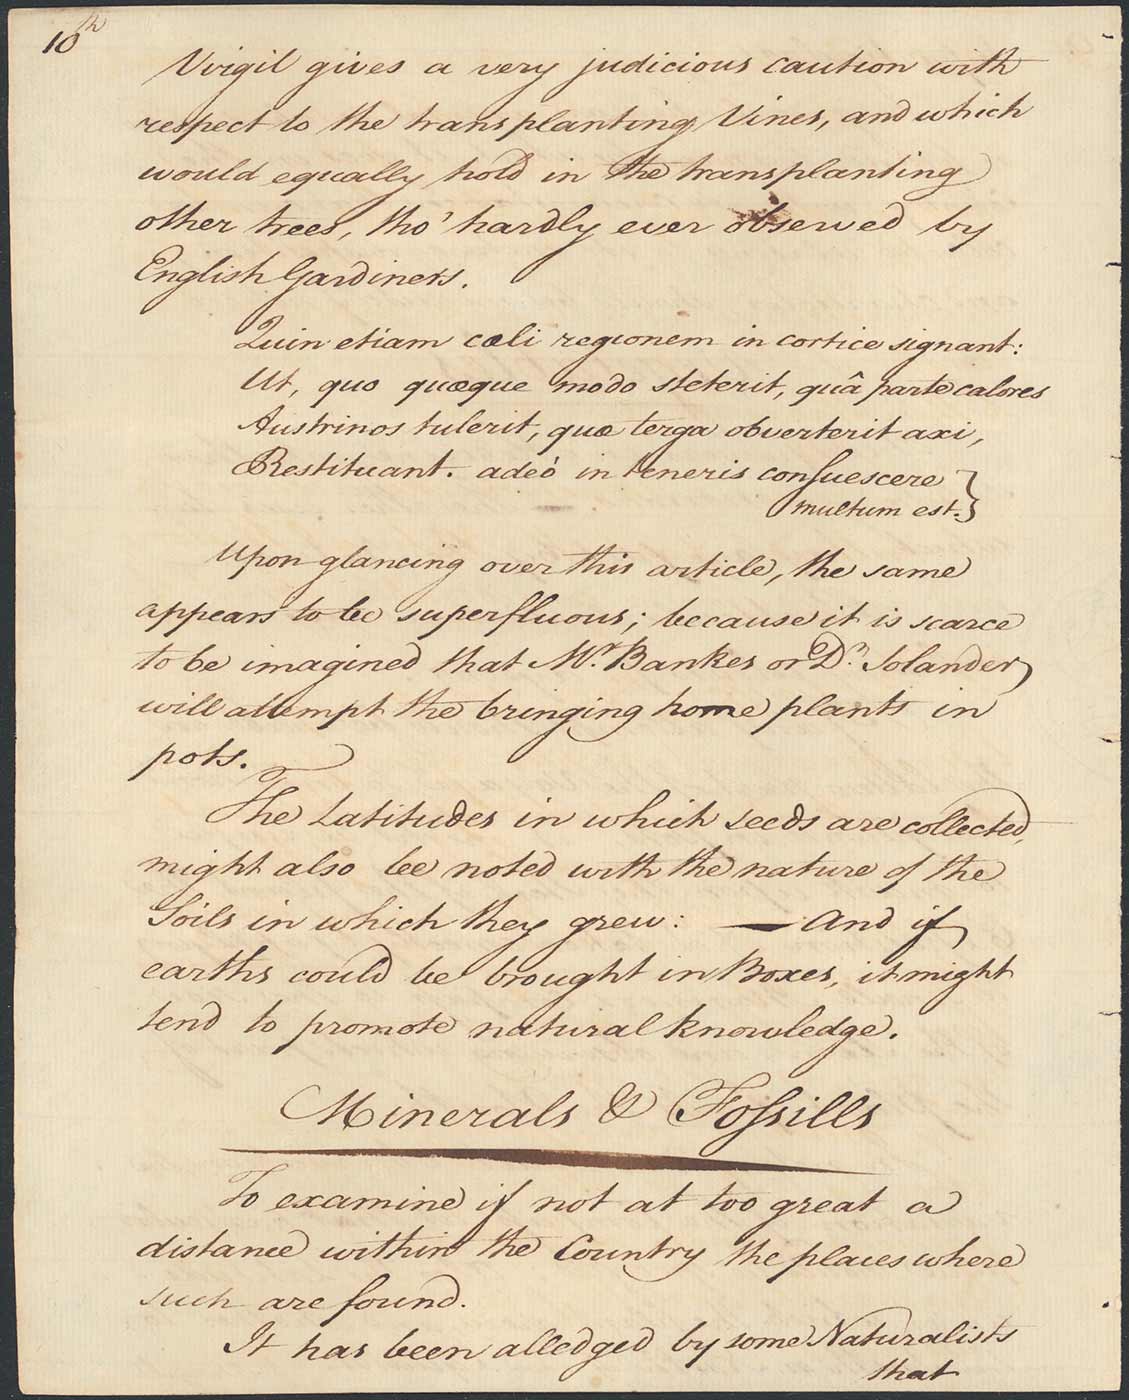 10th
Virgil gives a very judicious caution with
respect to the transplanting Vines, and which
would equally hold in the transplanting
other trees, tho' hardly ever observed by
English Gardiners.
Quin etiam cœli regionem in cortice signant:
Ut, quo quæque modo steterit, quâ parte calores
Austrinos tulerit, quæ terga obverterit axi,
Restituant. adeó in teneris consuescere }
multum est. }
Upon glancing over this article, the same
appears to be superfluous; because it is scarce
to be imagined that Mr. Bankes or Dr. Solander
will attempt the bringing home plants in
pots.
The Latitudes in which seeds are collected,
might also be noted with the nature of the
Soils in which they grew: — And if
earths could be brought in Boxes, it might
tend to promote natural knowledge.
Minerals & Fossills
To examine if not at too great a
distance within the Country the places where
such are found.
It has been alledged by some Naturalists
that